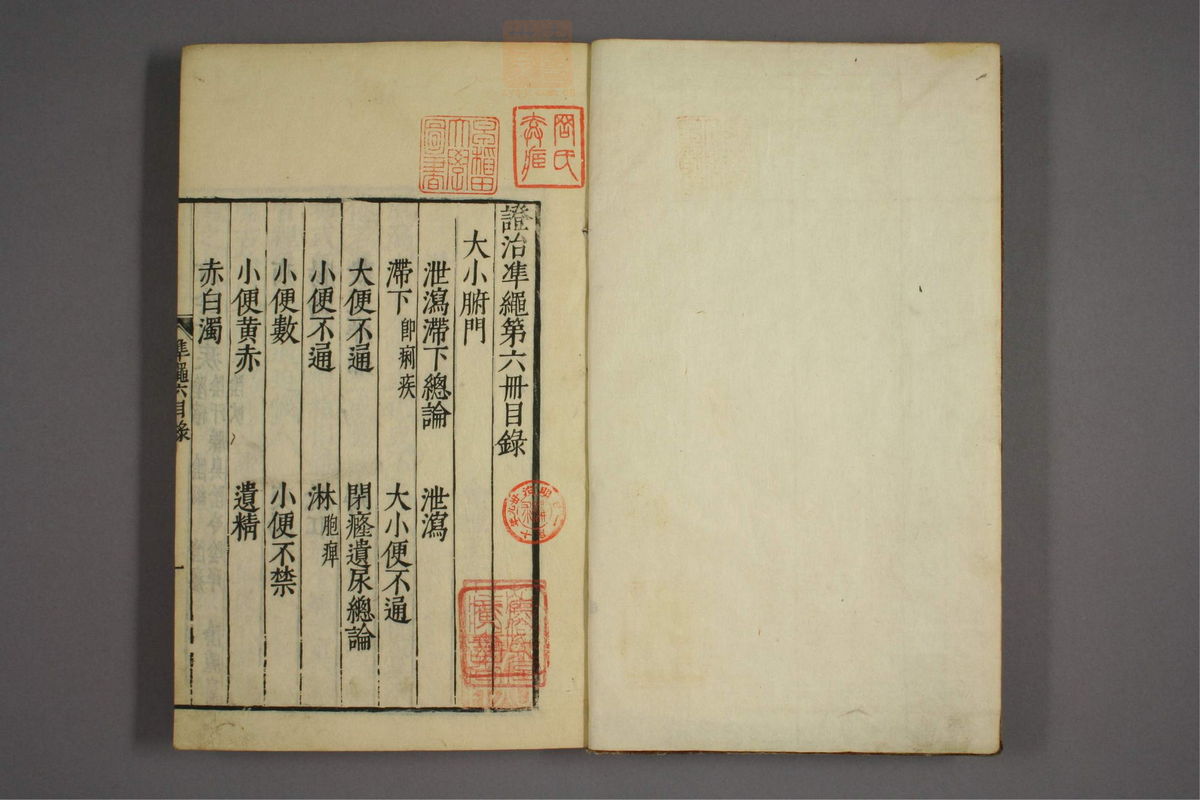 證治準繩第六冊目錄
大小腑門
泄瀉滯下總論 泄瀉
滯下 卽痢疾 大小便不通
大便不通 閉癃遺尿總論
小便不通 淋 胞痺
小便數 小便不禁
小便黄赤 遺精
赤白濁
準繩六目錄 一